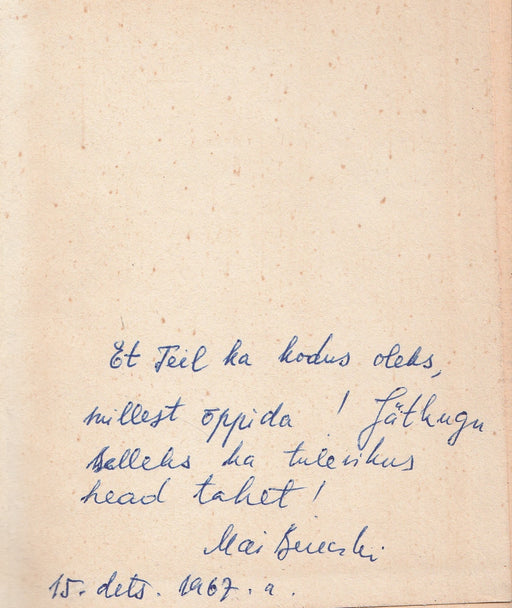 Et Teil ka kodus oleks,
millest õppida ! Jätkugu
selleks ka tulevikus
head tahet !
Mai Bereczki
15. dets. 1967. a.